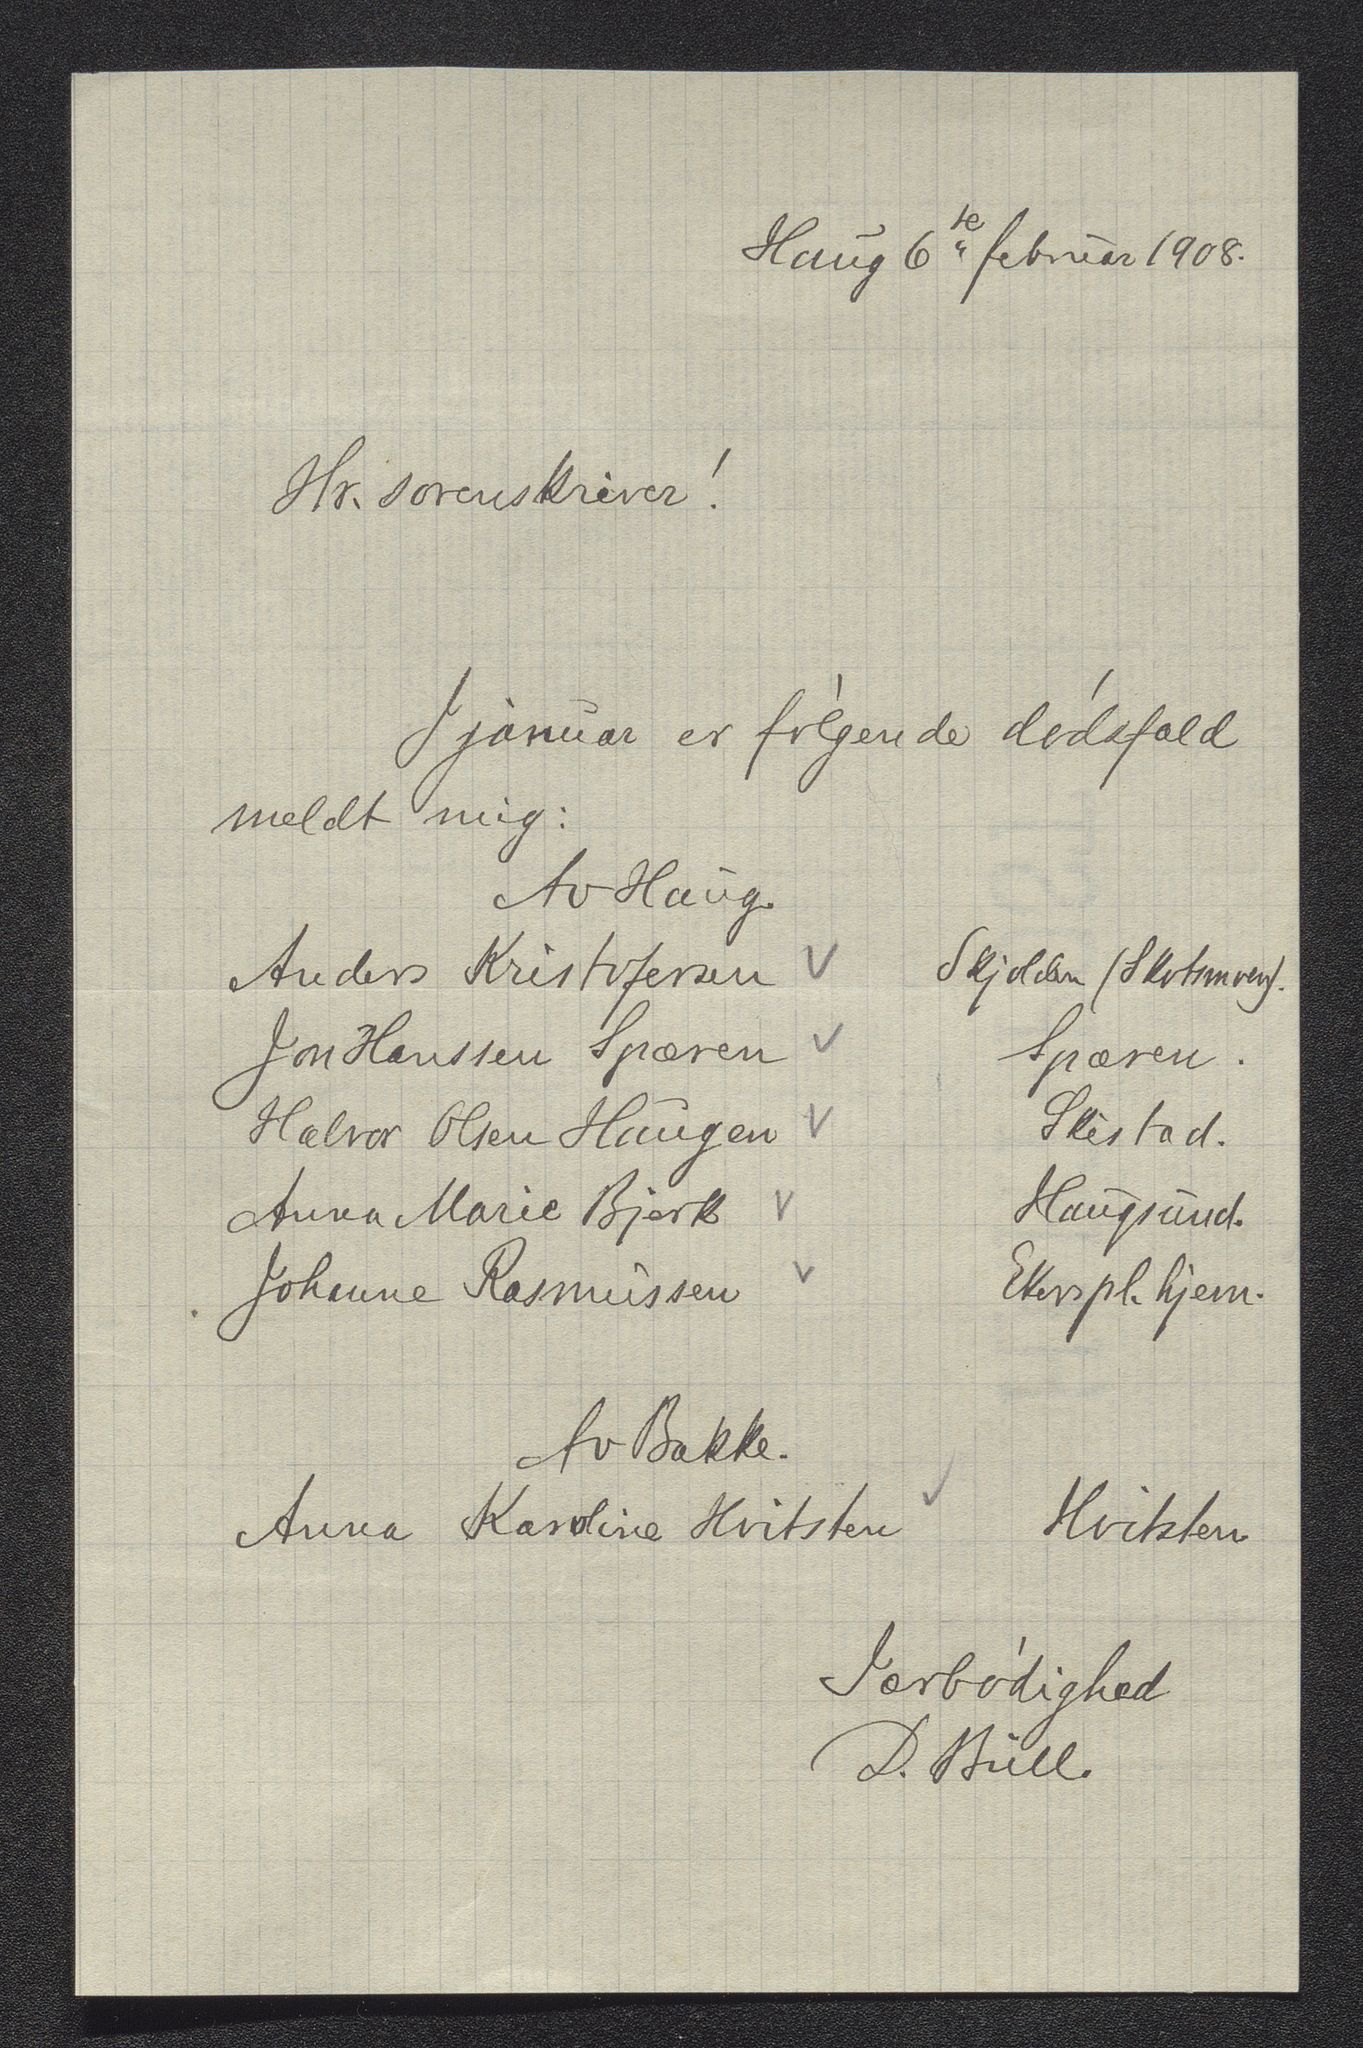 Haug 6te februar 1908.
Hr. sorenskriver!
I januar er følgende dødsfald
meldt mig:
Av Haug.
Anders Kristofersen V Skjolden (Skotsmoen).
Jon Hanssen Spæren V Spæren.
Halvor Olsen Haugen V Skistad.
Anna Marie Bjerk V Haugsund.
Johanne Rasmussen V Ekers pl. hjem.
Av Bakke.
Anna Karoline Hvitsten V Hvitsten.
Iærbødighed
D. Bull.